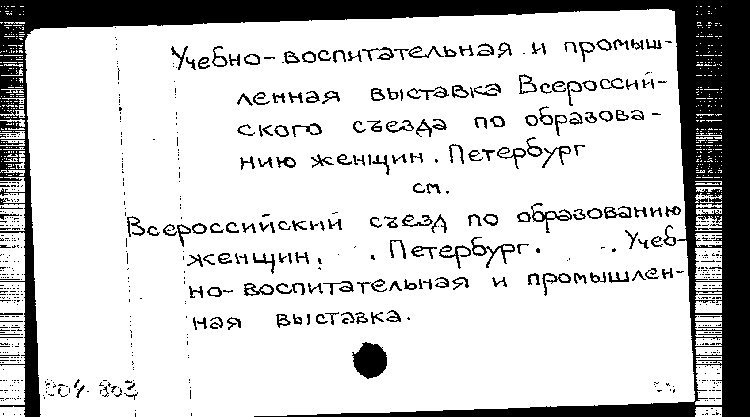 Учебно-воспитательная и промыш-
ленная выставка Всероссий-
ского съезда по образова-
нию женщин. Петербург
см.
Всероссийский съезд по образованию
женщин. Петербург. Учеб-
но-воспитательная и промышлен-
ная выставка.